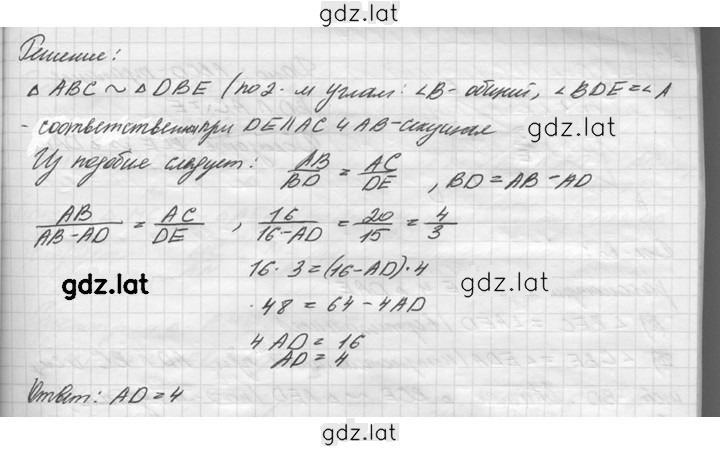 gdz.lat
Решение:
△ ABC ~ △ DBE (по 2-м углам: ∠B - общий, ∠BDE = ∠A
- соответственные при DE||AC и AB - секущая
Из подобие следует: AB/BD = AC/DE , BD = AB - AD
AB/(AB - AD) = AC/DE , 16/(16 - AD) = 20/15 = 4/3
16 · 3 = (16 - AD) · 4
gdz.lat gdz.lat
48 = 64 - 4AD
4 AD = 16
AD = 4
Ответ: AD = 4
gdz.lat